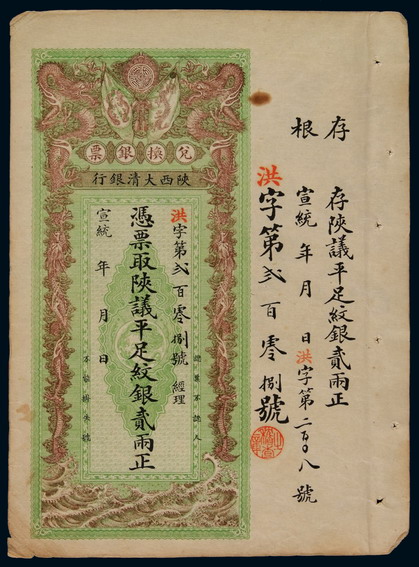 兌換銀票
陝西大清銀行
洪字第貳百零捌號 經理
憑票取陝議平足紋銀貳兩正
宣統 年 月 日
認票不認人
洪字第貳百零捌號
存根
存陝議平足紋銀貳兩正
宣統 年 月 日 洪字第二百〇八號